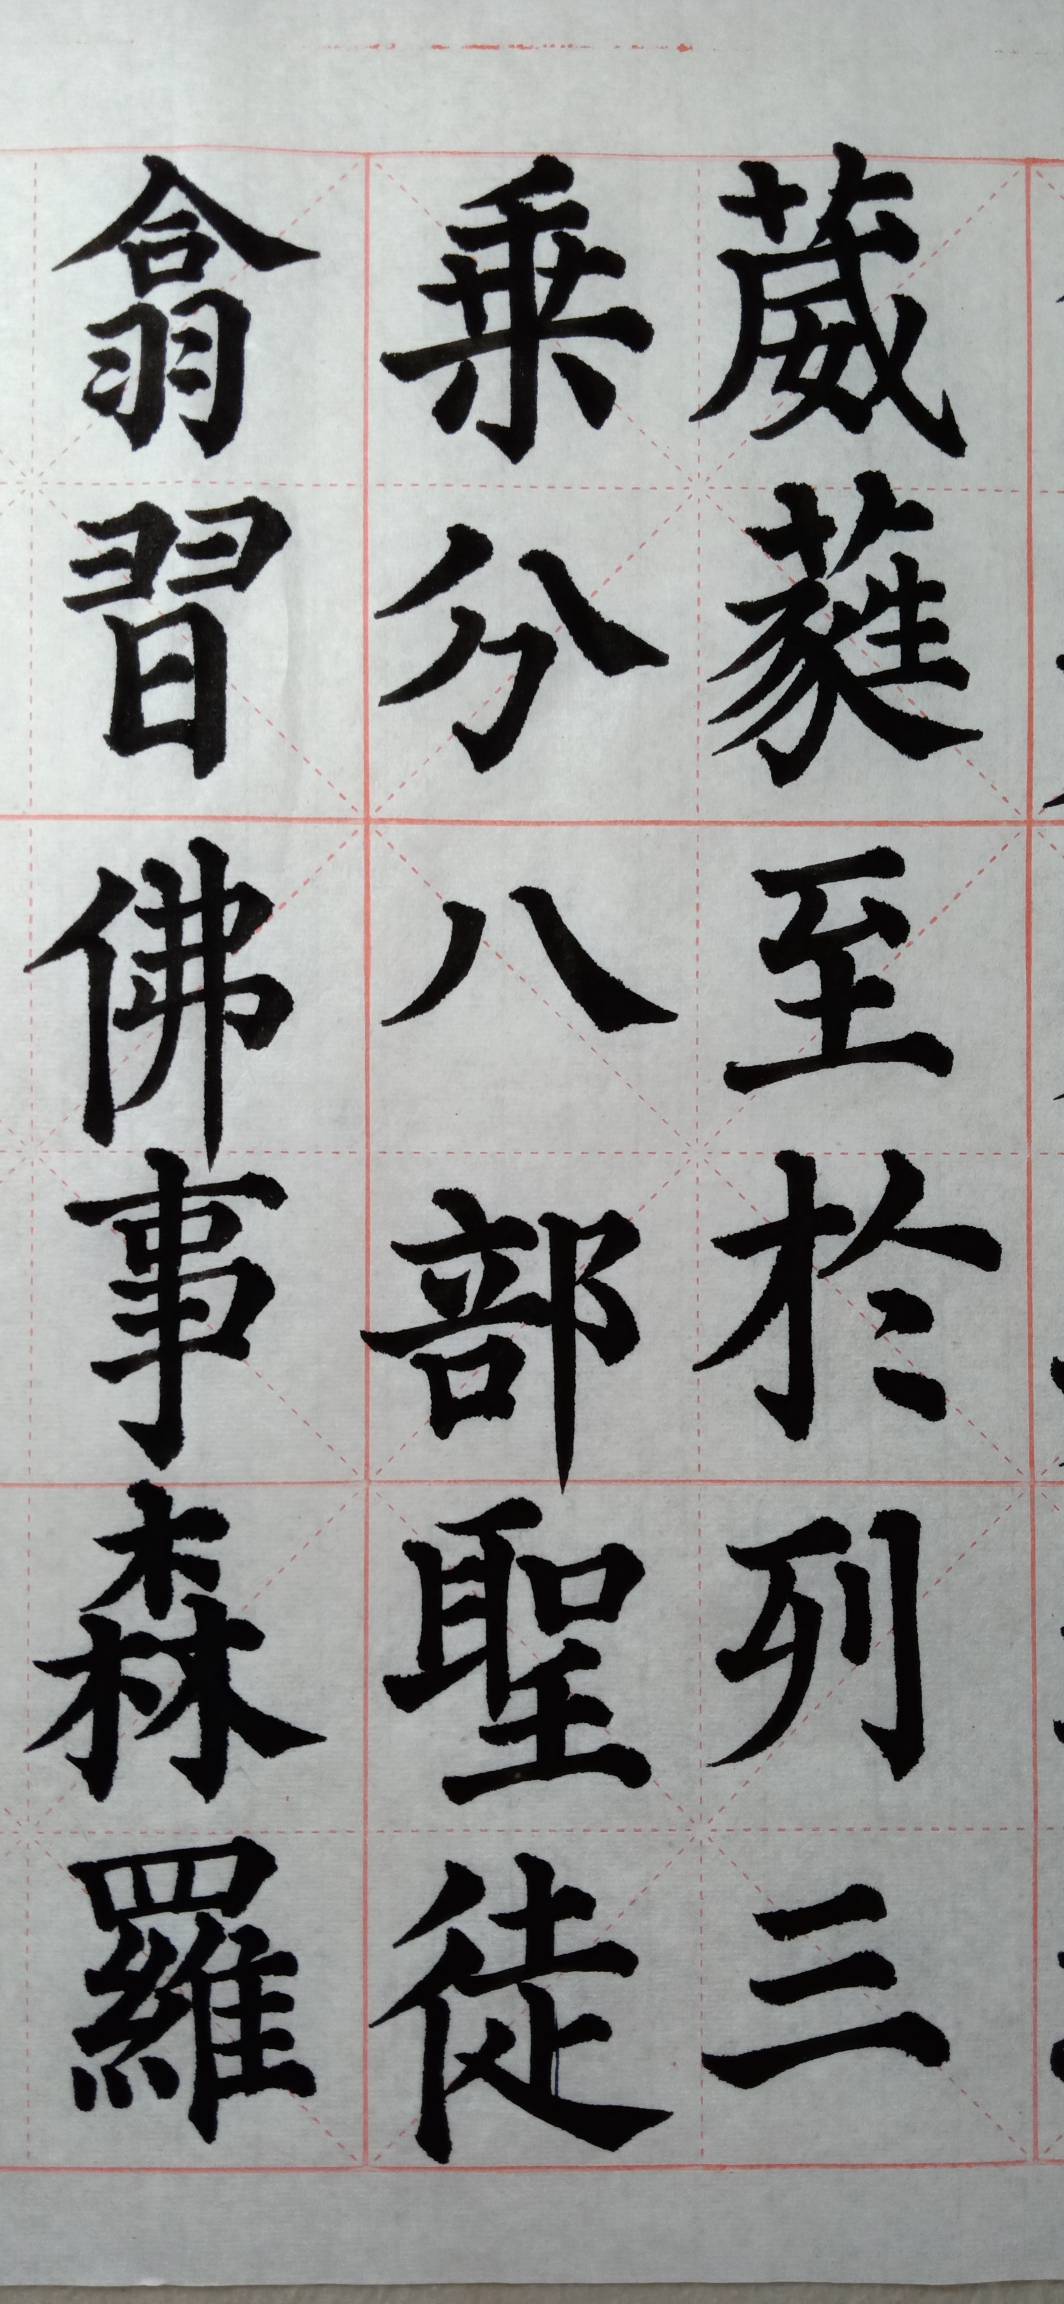 葳蕤至於列三
乗分八部聖徒
翕習佛事森羅